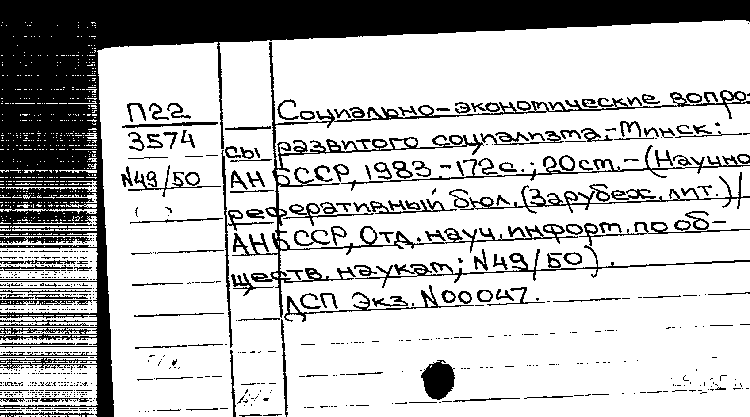 П22
3574
N49/50
Социально-экономические вопро-
сы развитого социализма.-Минск:
АН БССР, 1983.-172с.; 20см.-(Научно
реферативный бюл. (Зарубеж. лит.)/
АН БССР, Отд. науч. информ. по об-
ществ. наукам; N49/50).
ДСП Экз. N00047.